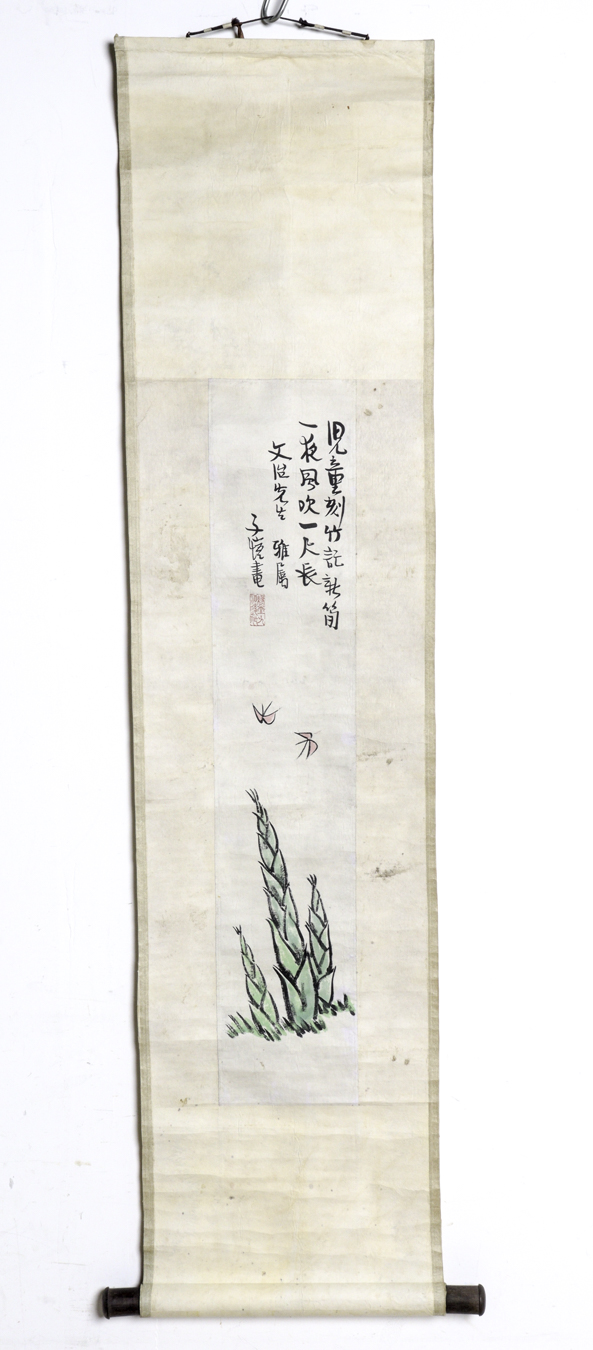 児童刻竹記新筍
一夜風吹一尺長
先生 雅属
子愷畫